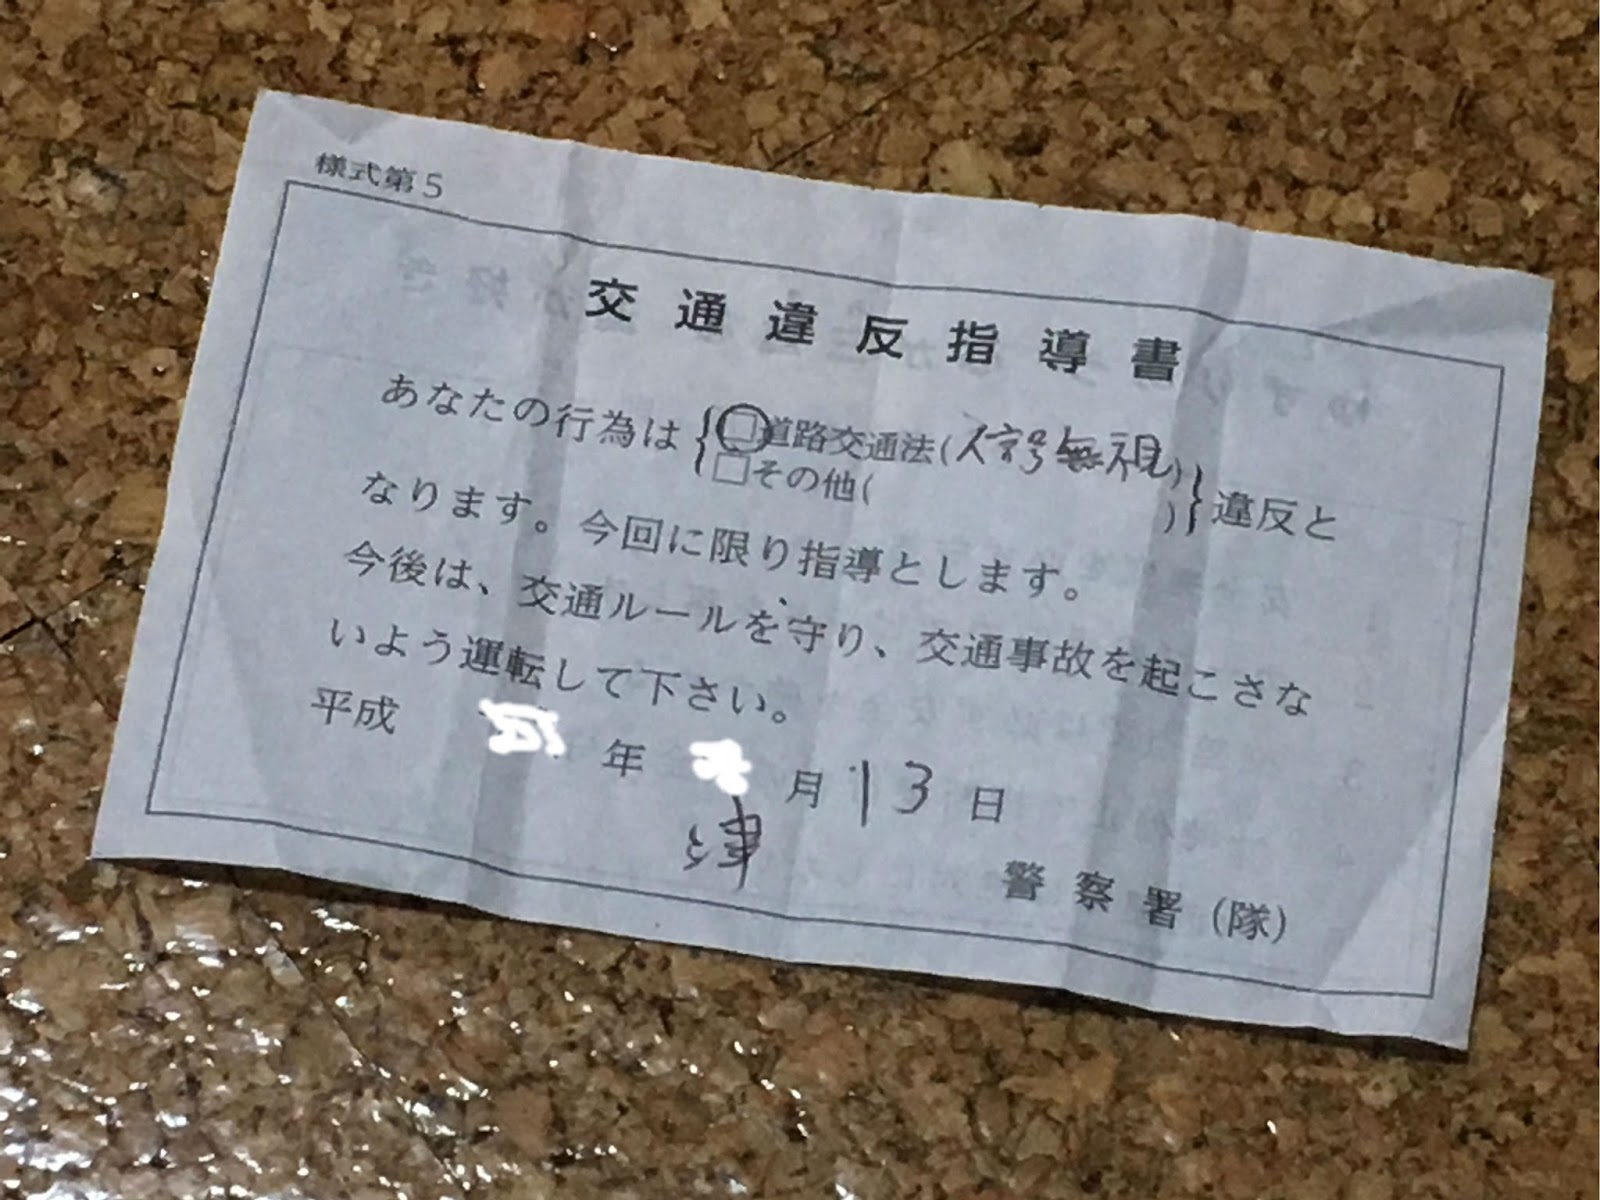 様式第5
交通違反指導書
あなたの行為は{□道路交通法(信号無視)
□その他( )}違反と
なります。今回に限り指導とします。
今後は、交通ルールを守り、交通事故を起こさな
いよう運転して下さい。
平成 年 月 13日
津 警察署(隊)